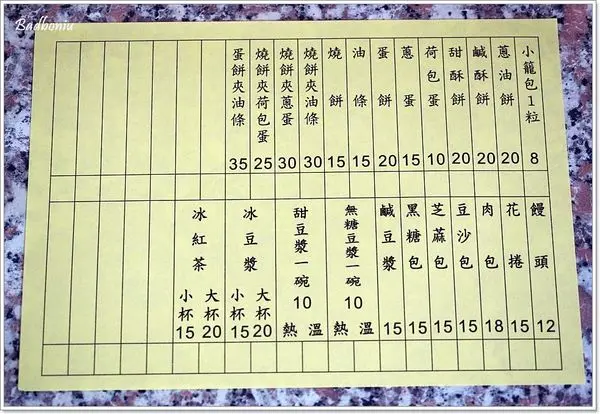 Badboniu
小籠包1粒 8
蔥油餅 20
鹹酥餅 20
甜酥餅 20
荷包蛋 10
蔥蛋 15
蛋餅 20
油條 15
燒餅 15
燒餅夾油條 30
燒餅夾蔥蛋 30
燒餅夾荷包蛋 25
蛋餅夾油條 35
饅頭 12
花捲 15
肉包 18
豆沙包 15
芝蔴包 15
黑糖包 15
鹹豆漿 15
無糖豆漿一碗 10 溫 熱
甜豆漿一碗 10 溫 熱
冰豆漿 大杯 20 小杯 15
冰紅茶 大杯 20 小杯 15